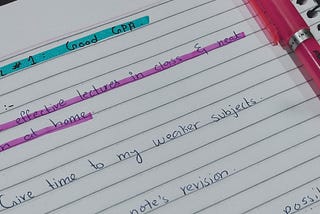 # 1 : Good GPA
:-
effective lectures in class & next
at home
Give time to my weaker subjects.
note's revision.
possi